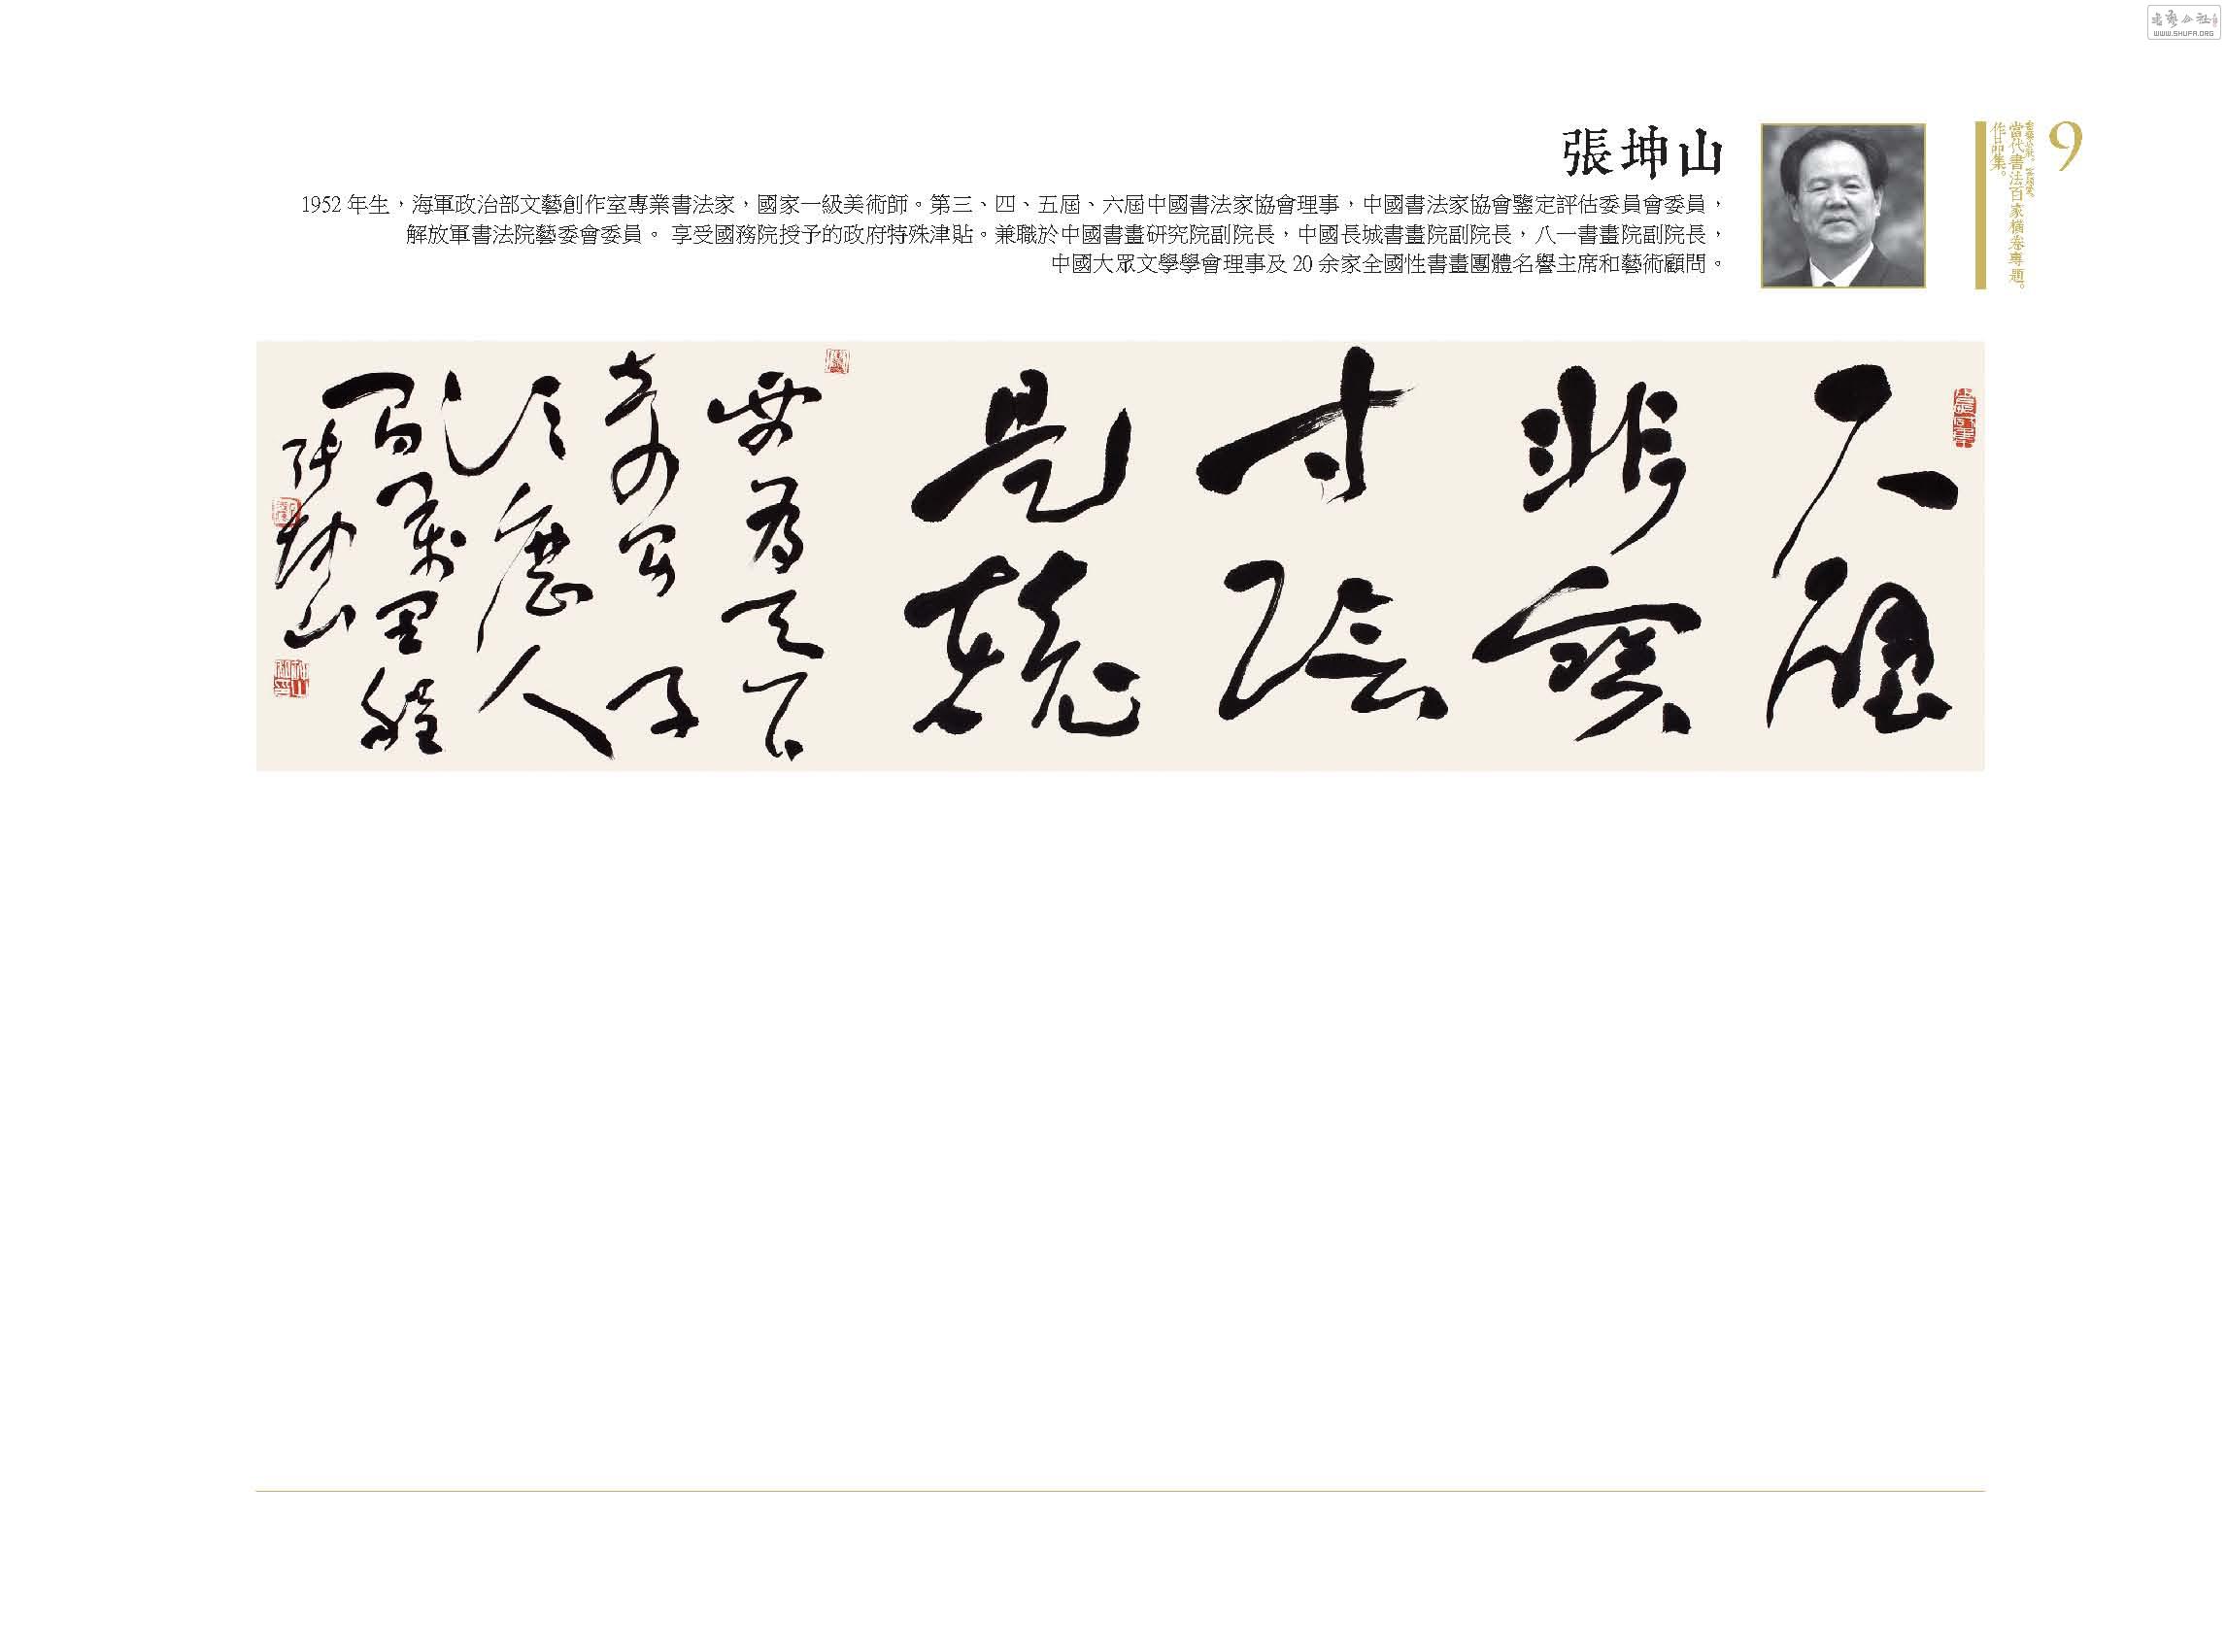 書藝公社
WWW.SHUFA.ORG
9
當代書法百家橫卷專題。
作品集。
張坤山
1952 年生，海軍政治部文藝創作室專業書法家，國家一級美術師。第三、四、五屆、六屆中國書法家協會理事，中國書法家協會鑒定評估委員會委員，
解放軍書法院藝委會委員。 享受國務院授予的政府特殊津貼。兼職於中國書畫研究院副院長，中國長城書畫院副院長，八一書畫院副院長，
中國大眾文學學會理事及 20 余家全國性書畫團體名譽主席和藝術顧問。
尺璧
非寶
寸陰
是競
要為天下
奇男子
須歷人
間萬里程
張坤山